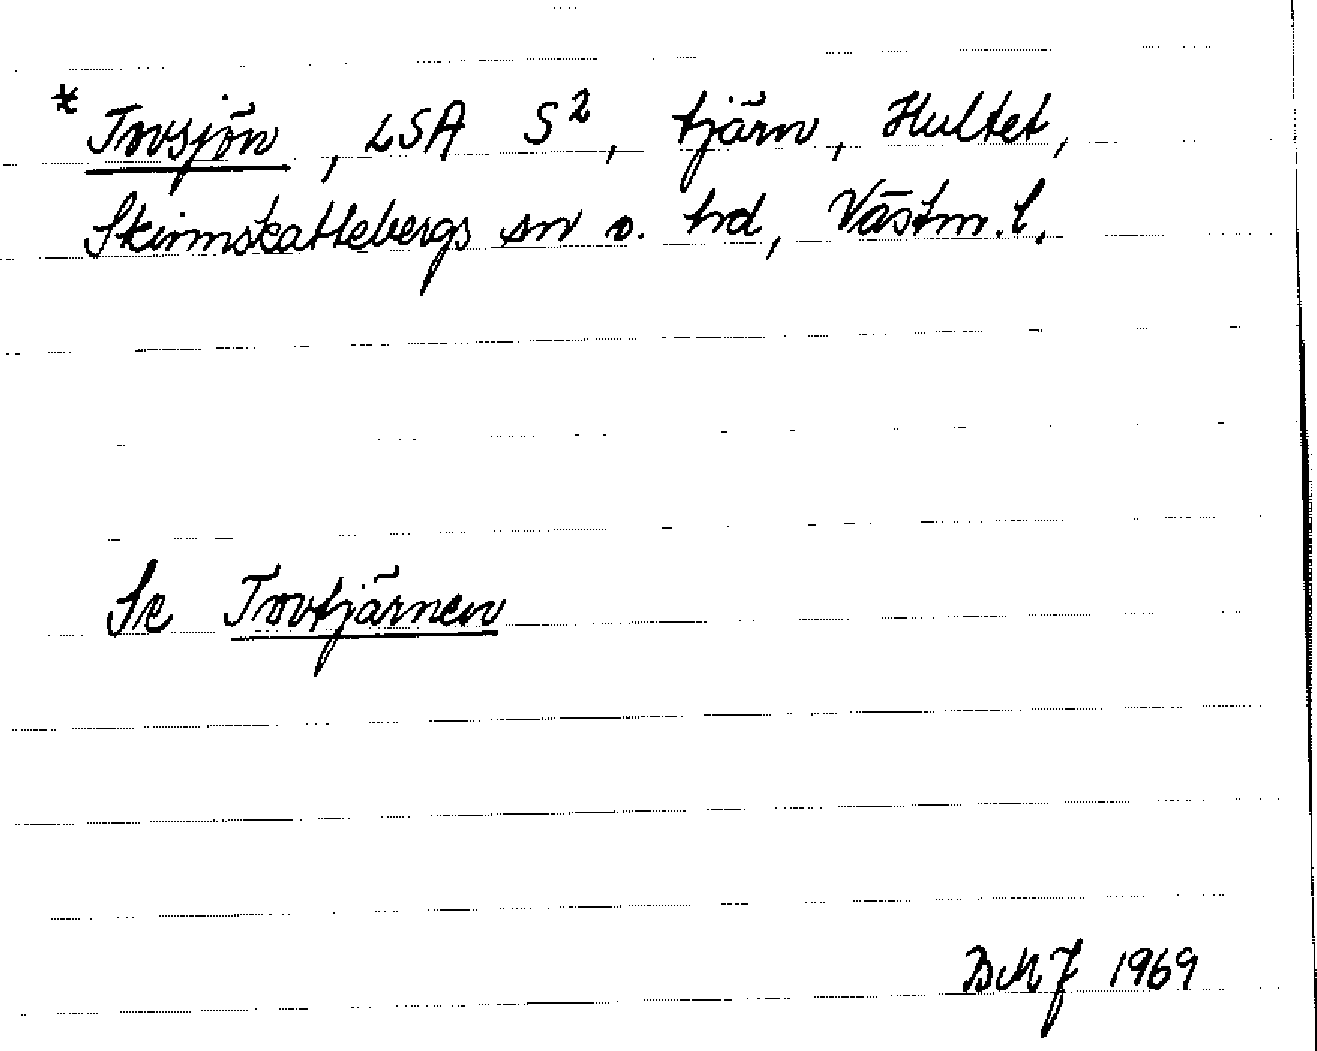 * Trosjön, LSA S², tjärn, Hultet,
Skinnskattebergs sn o. hd, Västm. l.
Se Trotjärnen
BMJ 1969